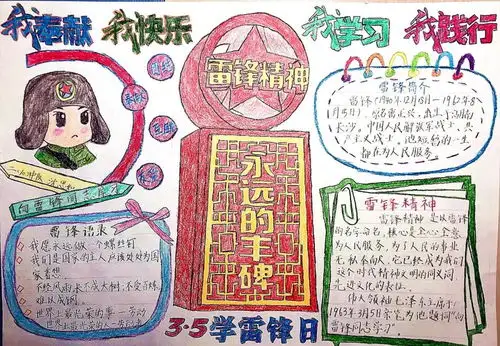 我奉献 我快乐 我学习 我践行
雷锋精神
永远的丰碑
3·5学雷锋日
向雷锋同志学习
雷锋语录
我愿永远做一个螺丝钉
我们是国家的主人应该处处为国
家着想
不经风雨,长不成大树;不受百炼,
难以成钢
世界上最光荣的事——劳动
雷锋简介
雷锋(1940年12月18日—1962年8
月15日),原名雷正兴,出生于湖南
长沙,中国人民解放军战士,共
产主义战士,他短暂的一生
都在为人民服务。
雷锋精神
雷锋精神是以雷锋
的名字命名,核心是全心全意
为人民服务,为了人民的事业
无私奉献,它已经成为我们
这个时代精神文明的同义词
先进文化的表征。
伟人领袖毛泽东主席于
1963年3月5日亲笔为他题词"向
雷锋同志学习"。